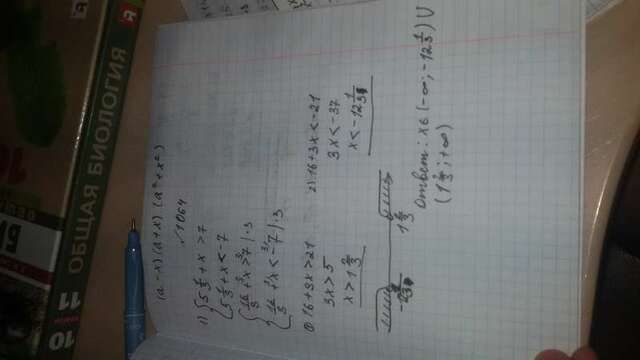 10
11
ОБЩАЯ БИОЛОГИЯ
(a-x)(a+x)(a²+x²)
√1064
1) { 5 1/3 + x > 7
5 1/3 + x < -7
{ 16/3 + x > 7 | ·3
16/3 + x < -7 | ·3
1) 16+3x>21 2) 16+3x<-21
3x>5 3x<-37
x>1 2/3 x<-12 1/3
-12 1/3 1 2/3
Ответ: x∈(-∞; -12 1/3) U
(1 2/3; +∞)